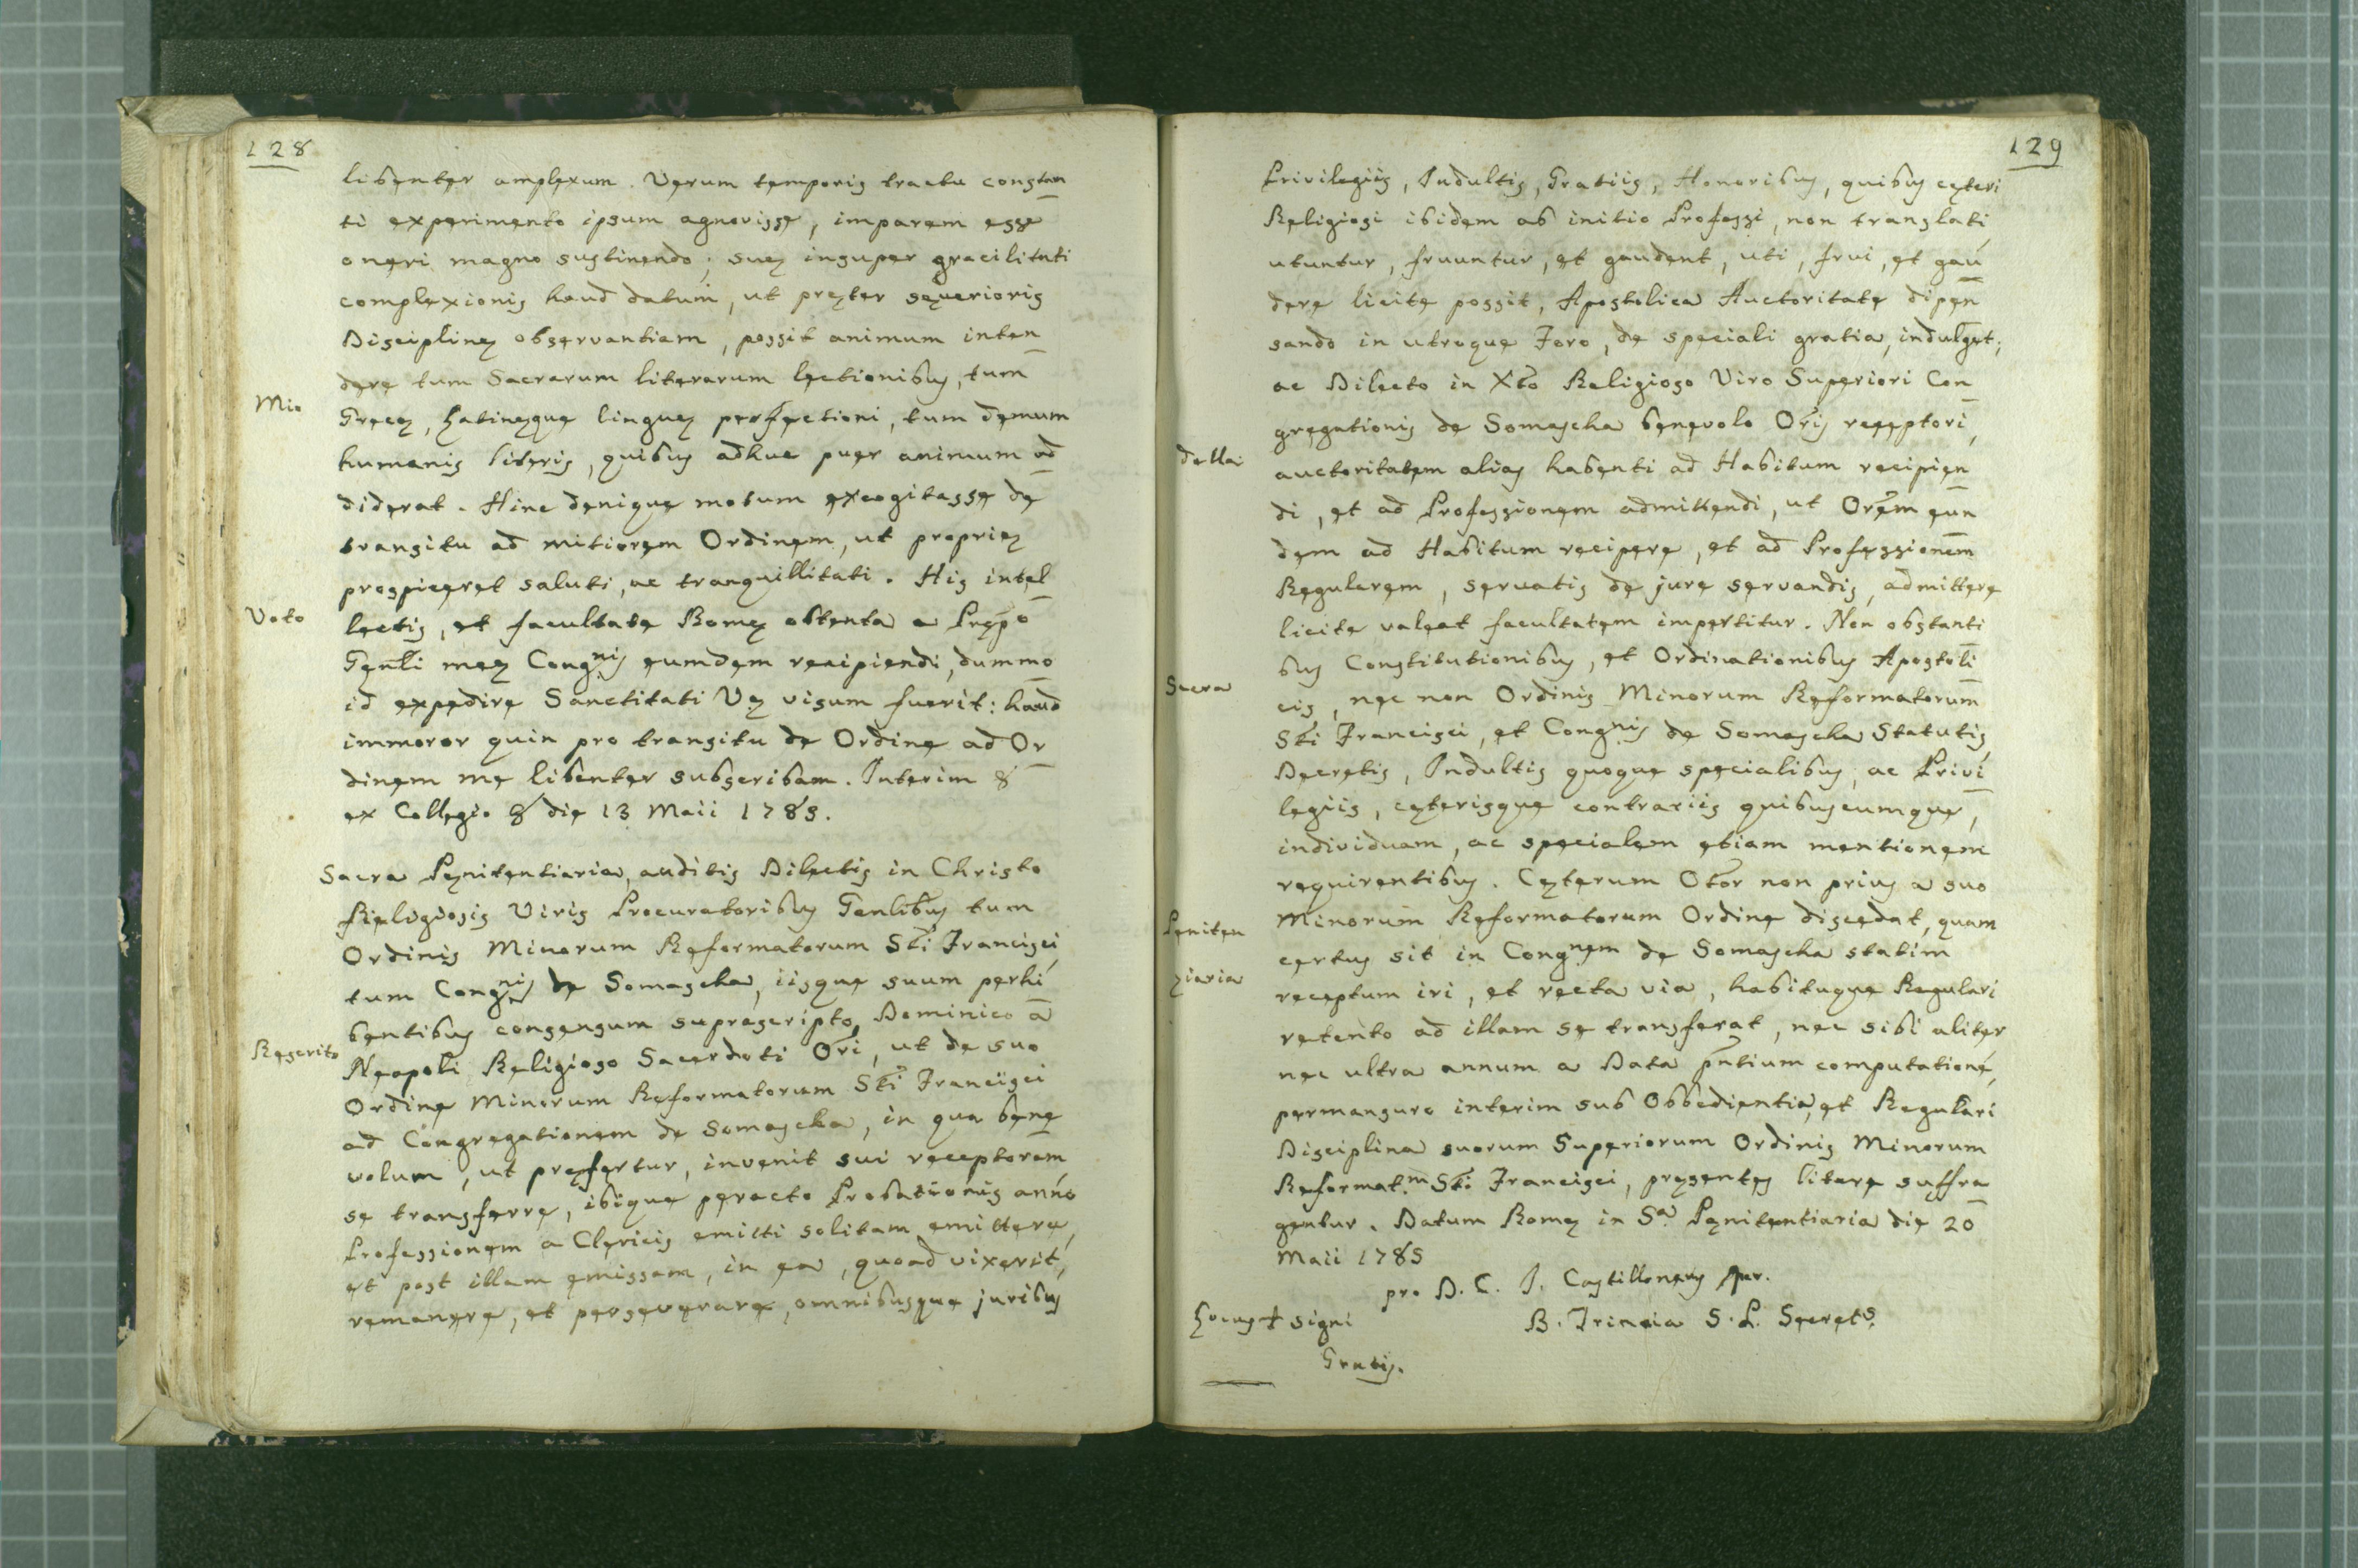 128
libenter amplexum. Verum temporis tractu constan
ti experimento ipsum agnovisse, imparem esse
oneri magno sustinendo; suę insuper gracilitati
complexionis haud datum, ut pręter severioris
Disciplinę observantiam, possit animum inten
dere tum Sacrarum literarum lectionibus, tum
Mio
Grecę, Latinęque linguę perfectioni, tum demum
humanis literis, quibus adhuc puer animum ad
diderat. Hinc denique motum excogitasse de
transitu ad mitiorem Ordinem, ut proprię
prospiceret saluti, ac tranquillitati. His intel
Voto
lectis, et facultate Romę obtenta a Prępo
Genli meę Congnis eumdem recipiendi, dummo
id expedire Sanctitati Vę visum fuerit: haud
immoror quin pro transitu de Ordine ad Or
dinem me libenter subscribam. Interim &
ex Collegio & die 13 Maii 1785.
Sacra Pęnitentiaria, auditis Dilectis in Christo
Religiosis Viris Procuratoribus Genlibus tum
Ordinis Minorum Reformatorum Sti Francisci,
tum Congnis de Somascha, iisque suum perhi
bentibus consensum suprascripto, Dominico a
Rescrito
Neapoli Religioso Sacerdoti Ori, ut de suo
Ordine Minorum Reformatorum Sti Francisci
ad Congregationem de Somascha, in qua bene
volum, ut pręfertur, invenit sui receptorem
se transferre, ibique peracto Probationis anno
Professionem a Clericis emitti solitam emittere,
et post illam emissam, in ea, quoad vixerit,
remanere, et perseverare, omnibusque juribus
129
Privilegiis, Indultis, Gratiis, Honoribus, quibus cęteri
Religiosi ibidem ab initio Professi, non translati
utuntur, fruuntur, et gaudent, uti, frui, et gau
dere licite possit, Apostolica Auctoritate dipen
sando in utroque Foro, de speciali gratia, indulget;
ac Dilecto in Xto Religioso Viro Superiori Con
gregationis de Somascha benevolo Oris receptori,
della
auctoritatem alias habenti ad Habitum recipien
di, et ad Professionem admittendi, ut Orem eun
dem ad Habitum recipere, et ad Professionem
Regularem, servatis de jure servandis, admittere
licite valeat facultatem impertitur. Non obstanti
bus Constitutionibus, et Ordinationibus Apostoli
Sacra
cis, nec non Ordinis Minorum Reformatorum
Sti Francisci, et Congnis de Somascha Statutis,
Decretis, Indultis quoque specialibus, ac Privi
legiis, cęterisque contrariis quibuscumque,
individuam, ac specialem etiam mentionem
requirentibus. Cęterum Otor non prius a suo
Peniten
Minorum Reformatorum Ordine discedat, quam
certus sit in Congnem de Somascha statim
ziaria
receptum iri, et recta via, habituque Regulari
retento ad illam se transferat, nec sibi aliter
nec ultra annum a Data pntium computatione,
permansuro interim sub Obbedientia, et Regulari
Disciplina suorum Superiorum Ordinis Minorum
Reformat.m Sti Francisci, pręsentes literę suffra
gentur. Datum Romę in Sa Pęnitentiaria die 20
Maii 1785
pro D. C. I. Castilloneus
Locus + signi
B. Trincia S. P. Secrets.
Gratis.